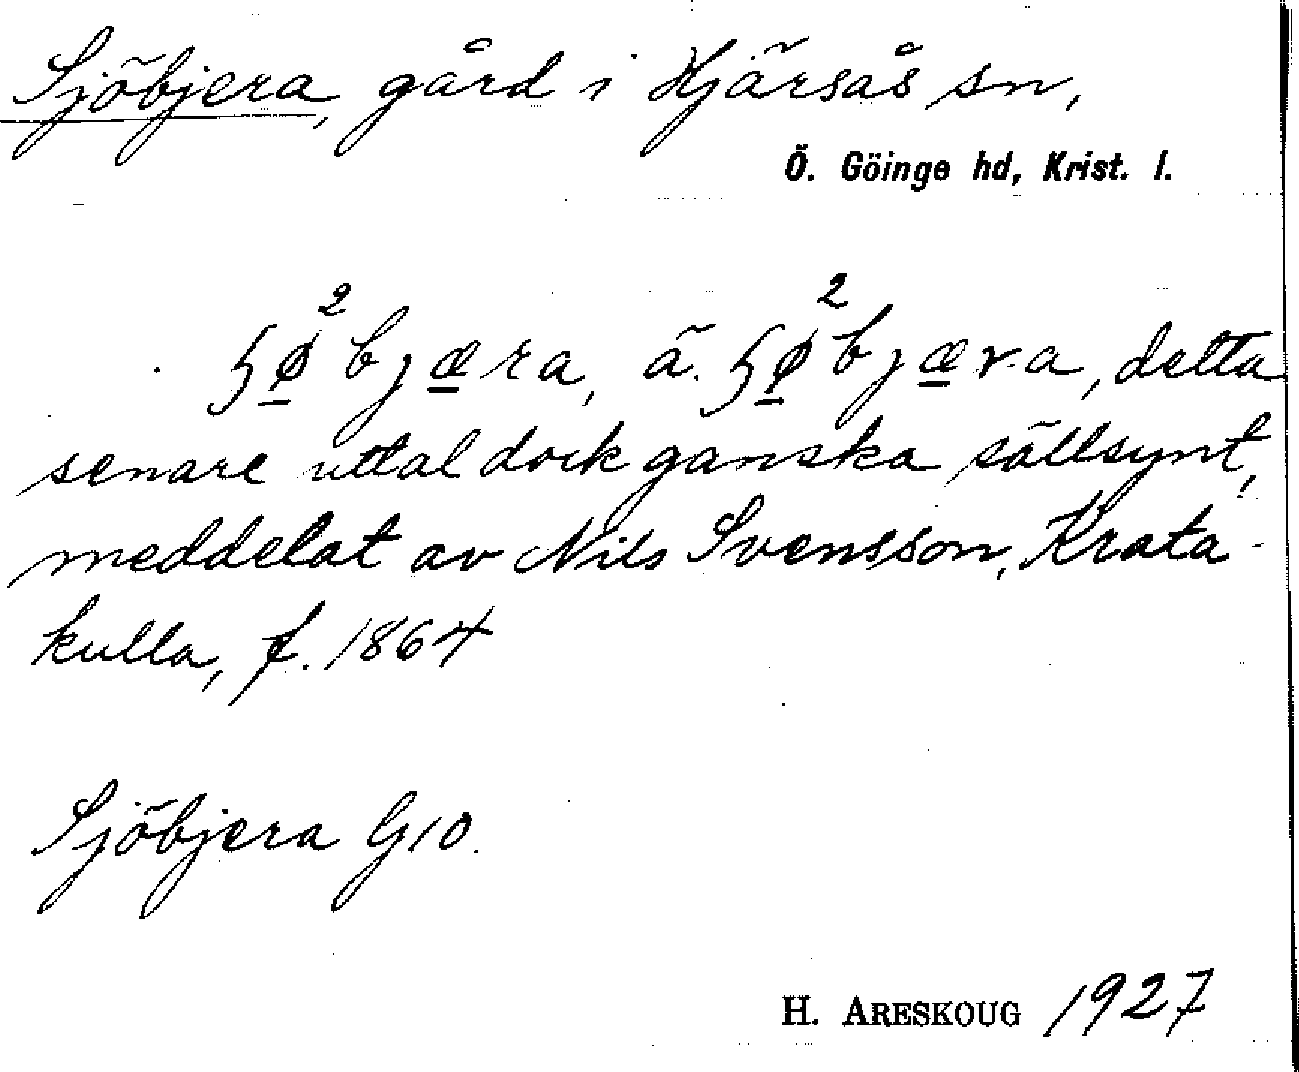 Sjöbjera, gård i Hjärsås sn,
Ö. Göinge hd, Krist. l.
ʃø̲²bjæ̲ra, ä. ʃø̲²bjæ̲ra, detta
senare uttal dock ganska sällsynt,
meddelat av Nils Svensson, Krata-
kulla, f. 1864
Sjöbjera G10.
H. ARESKOUG 1927